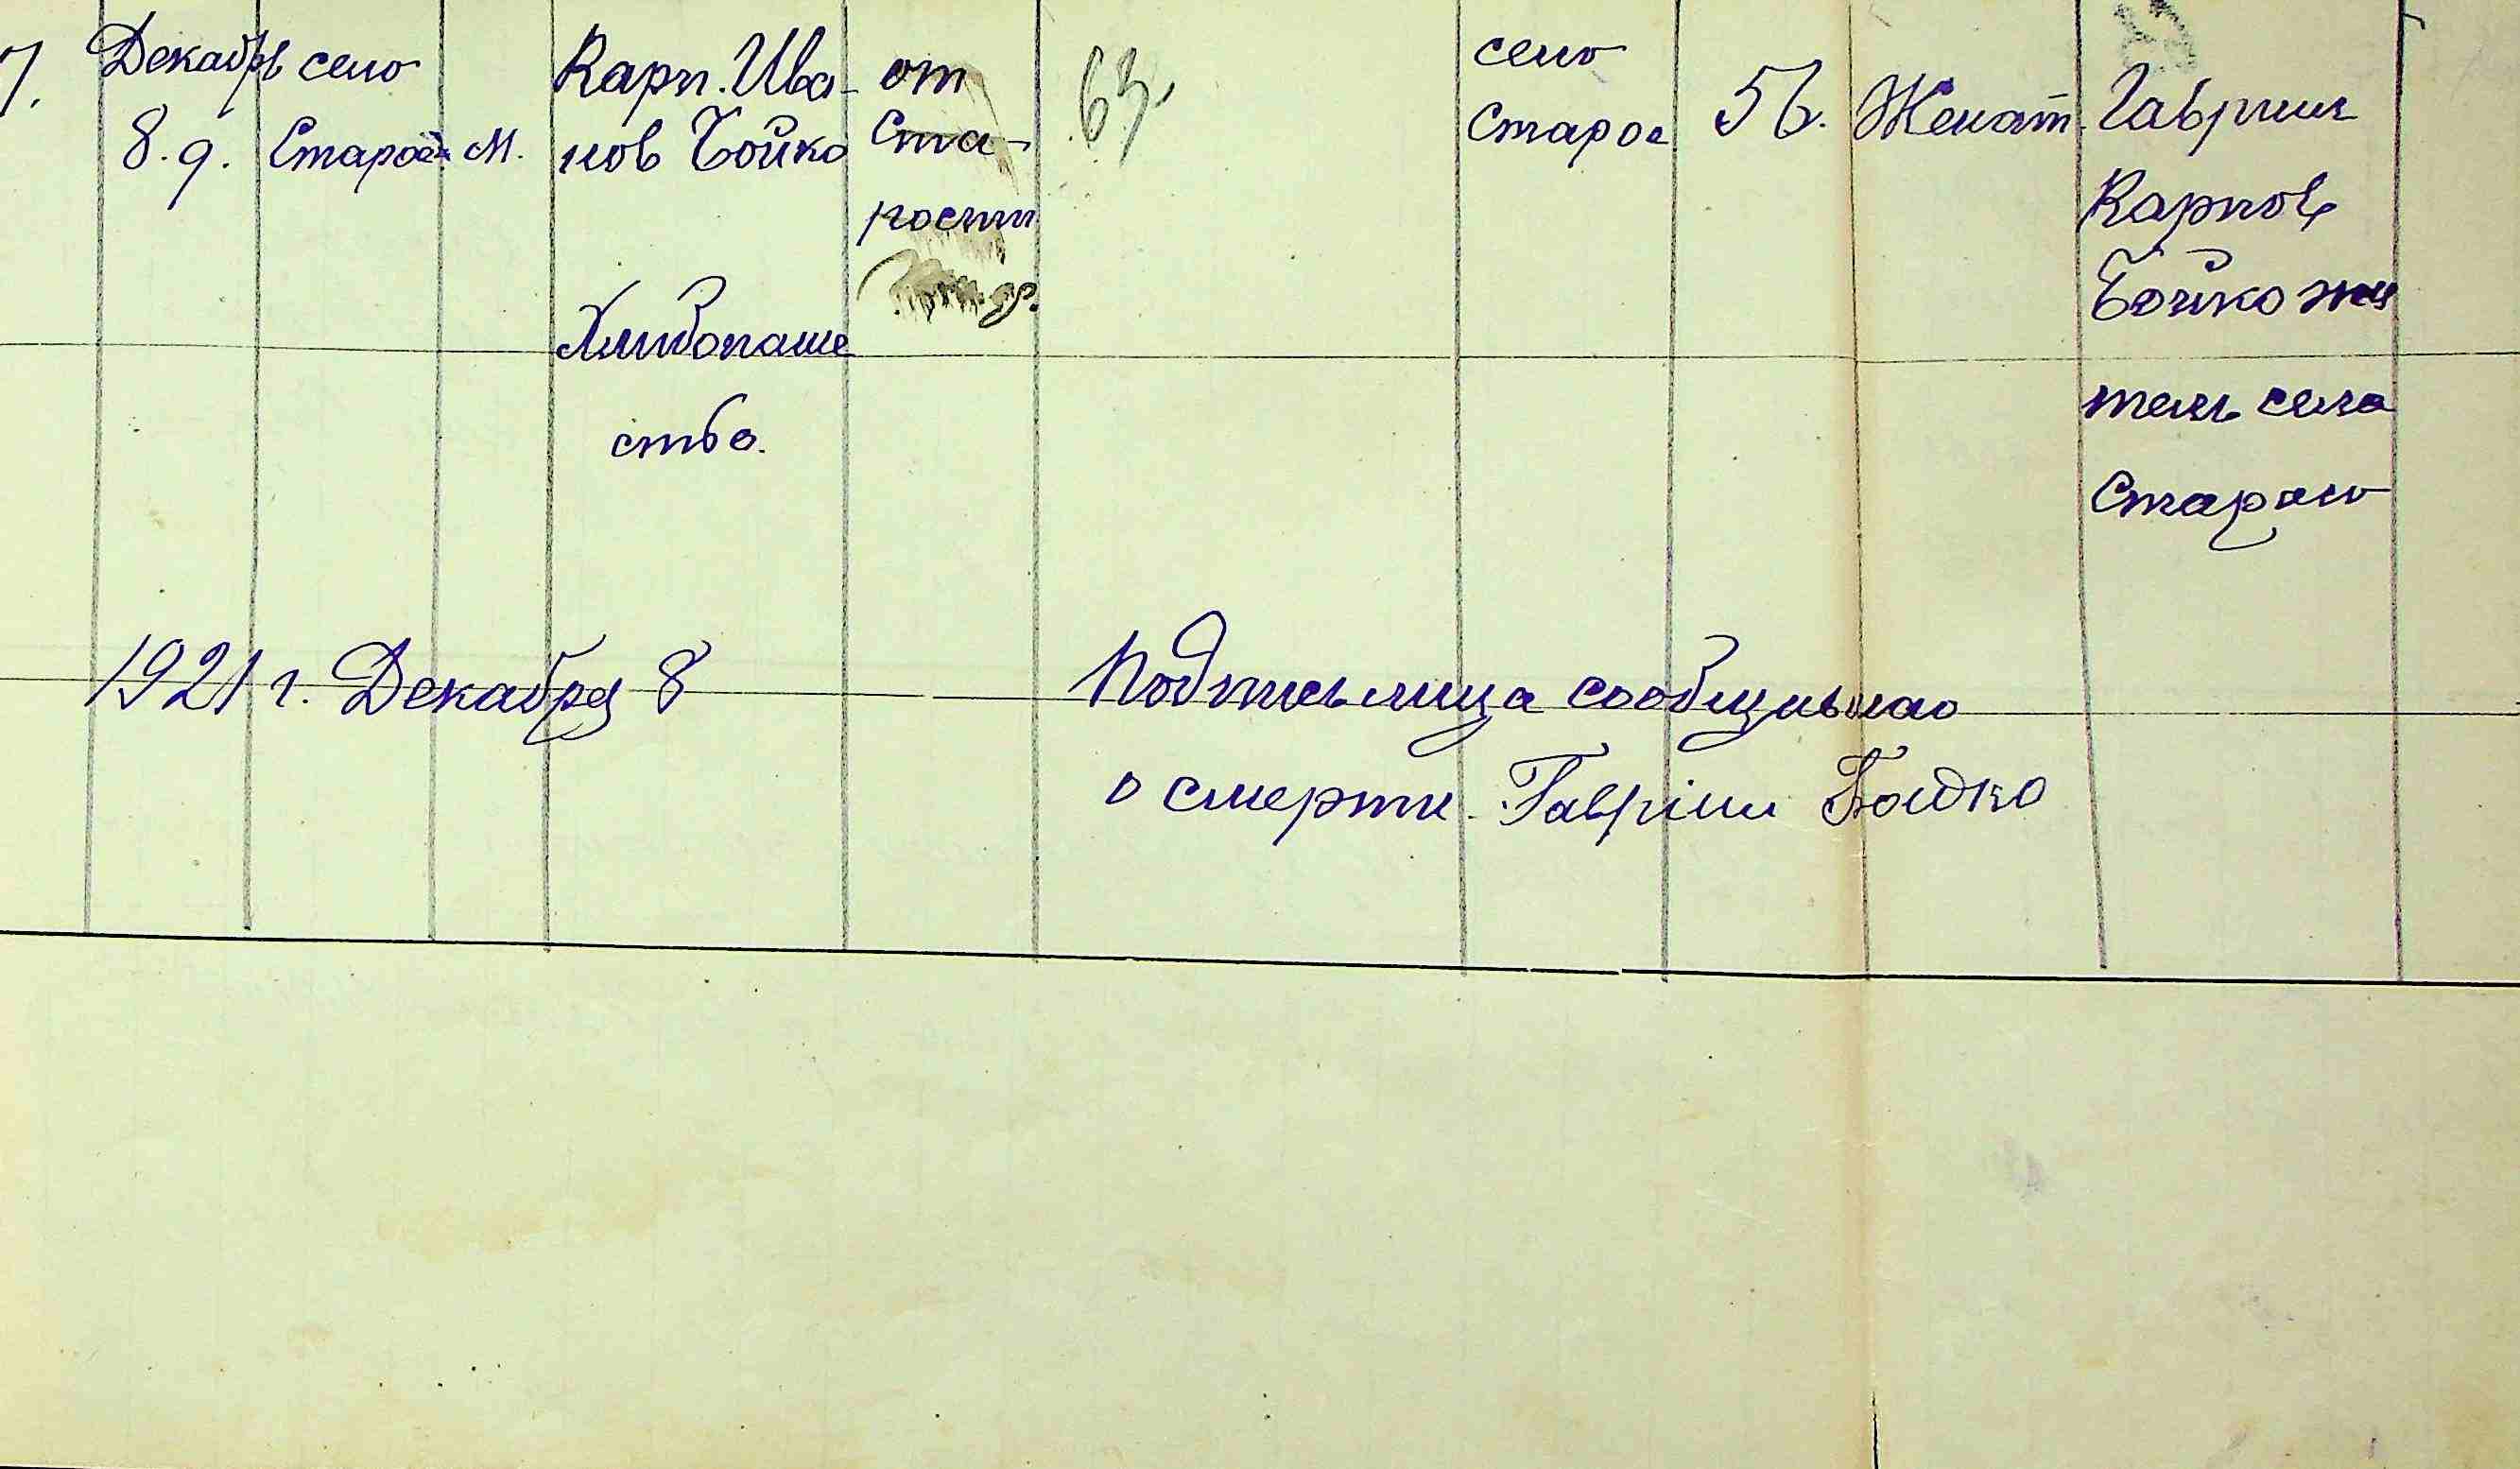 7.
Декабрь
8. д.
село
Старое
м.
Карп. Ива-
нов Бойко
Хлибопаше
ство.
от
Ста-
рости
63.
село
Старое
56.
Женат.
Гавриил
Карпов
Бойко жи
тель села
Старого
1921 г. Декабря 8
Подпись лица сообщившаго
о смерти. Гавріил Бойко